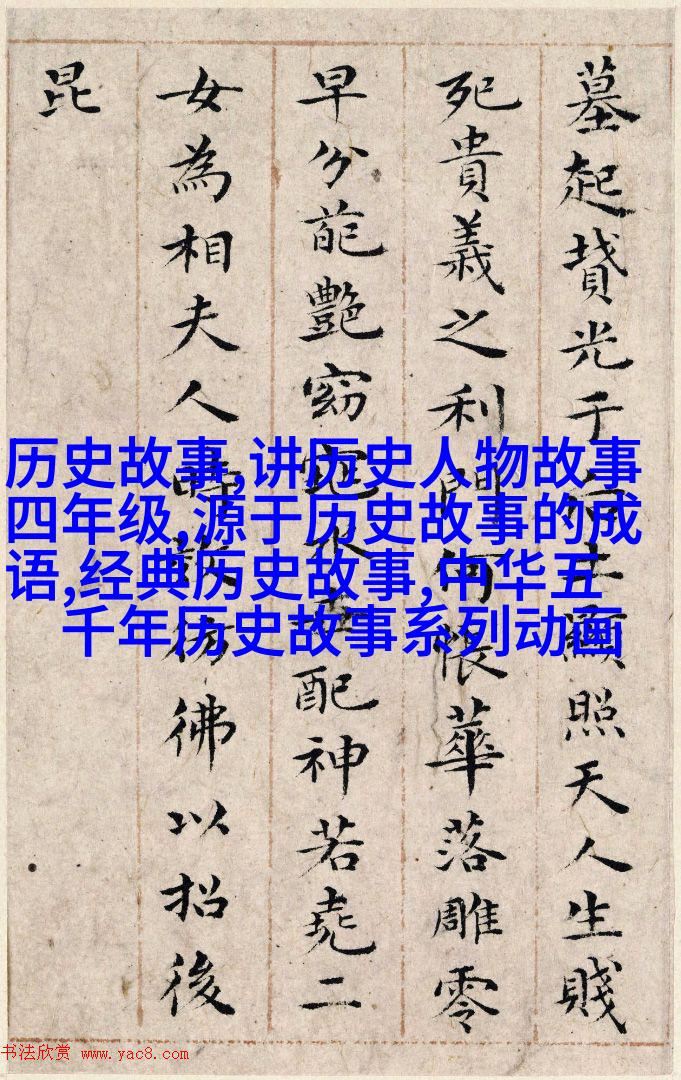 墓起墳光于后土顯照天人生賤
死貴義之利門何悵華落雕零
早分葩艷窈窕永世配神若堯二
女為相夫人時效彷彿以招後
昆
历史故事,讲历史人物故事
四年级,源于历史故事的成
语,经典历史故事,中华五
千年历史故事系列动画
书法欣赏 www.yac8.com